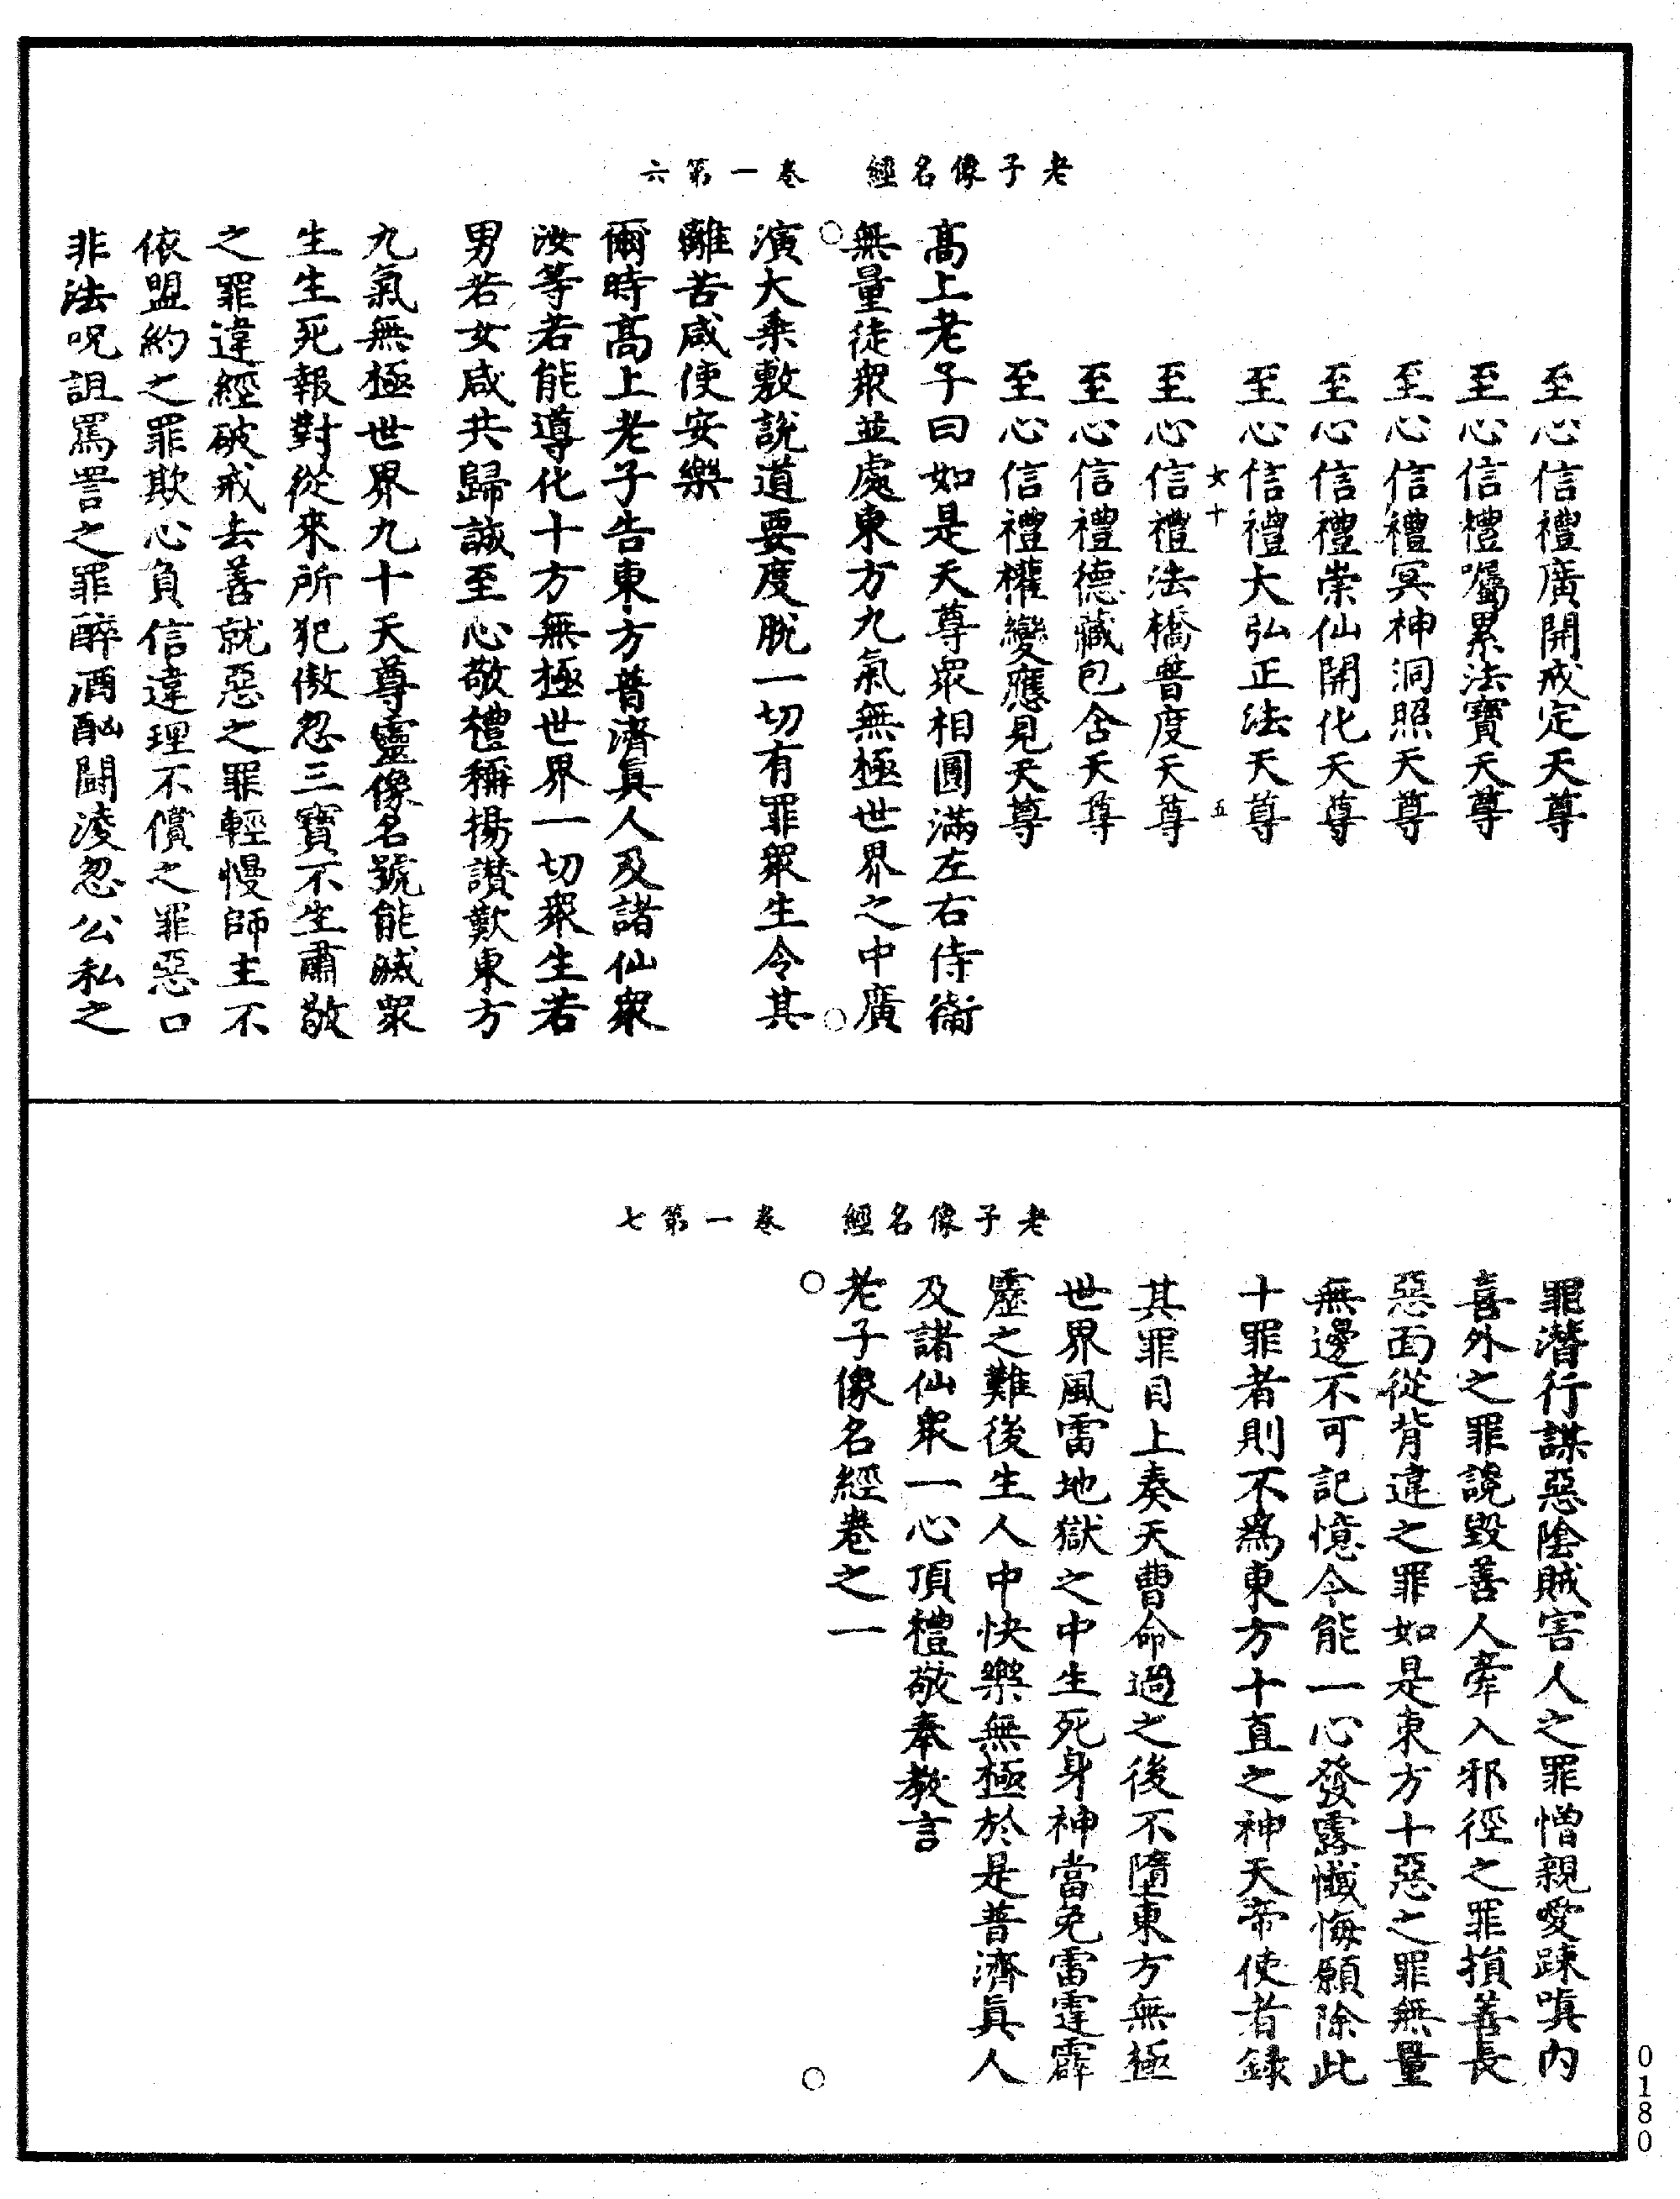 老子像名經　卷一第六
至心信禮廣開戒定天尊
至心信禮囑累法寶天尊
至心信禮冥神洞照天尊
至心信禮崇仙開化天尊
至心信禮大弘正法天尊
女十　五
至心信禮法橋普度天尊
至心信禮德藏包含天尊
至心信禮權變應見天尊
高上老子曰如是天尊衆相圓滿左右侍衞
無量徒衆並處東方九氣無極世界之中廣
演大乘敷說道要度脫一切有罪衆生令其
離苦咸使安樂
爾時高上老子告東方普濟眞人及諸仙衆
汝等若能導化十方無極世界一切衆生若
男若女咸共歸誠至心敬禮稱揚讃歎東方
九氣無極世界九十天尊靈像名號能滅衆
生生死報對從來所犯傲忽三寶不生肅敬
之罪違經破戒去善就惡之罪輕慢師主不
依盟約之罪欺心負信違理不償之罪惡口
非法呪詛罵詈之罪醉酒酗鬪淩忽公私之
老子像名經　卷一第七
罪潛行謀惡陰賊害人之罪憎親愛踈嗔內
喜外之罪讒毀善人牽入邪徑之罪損善長
惡面從背違之罪如是東方十惡之罪無量
無邊不可記憶今能一心發露懺悔願除此
十罪者則不爲東方十直之神天帝使者録
其罪目上奏天曹命過之後不墮東方無極
世界風雷地獄之中生死身神當免雷霆霹
靂之難後生人中快樂無極於是普濟眞人
及諸仙衆一心頂禮敬奉教言
老子像名經卷之一
0180